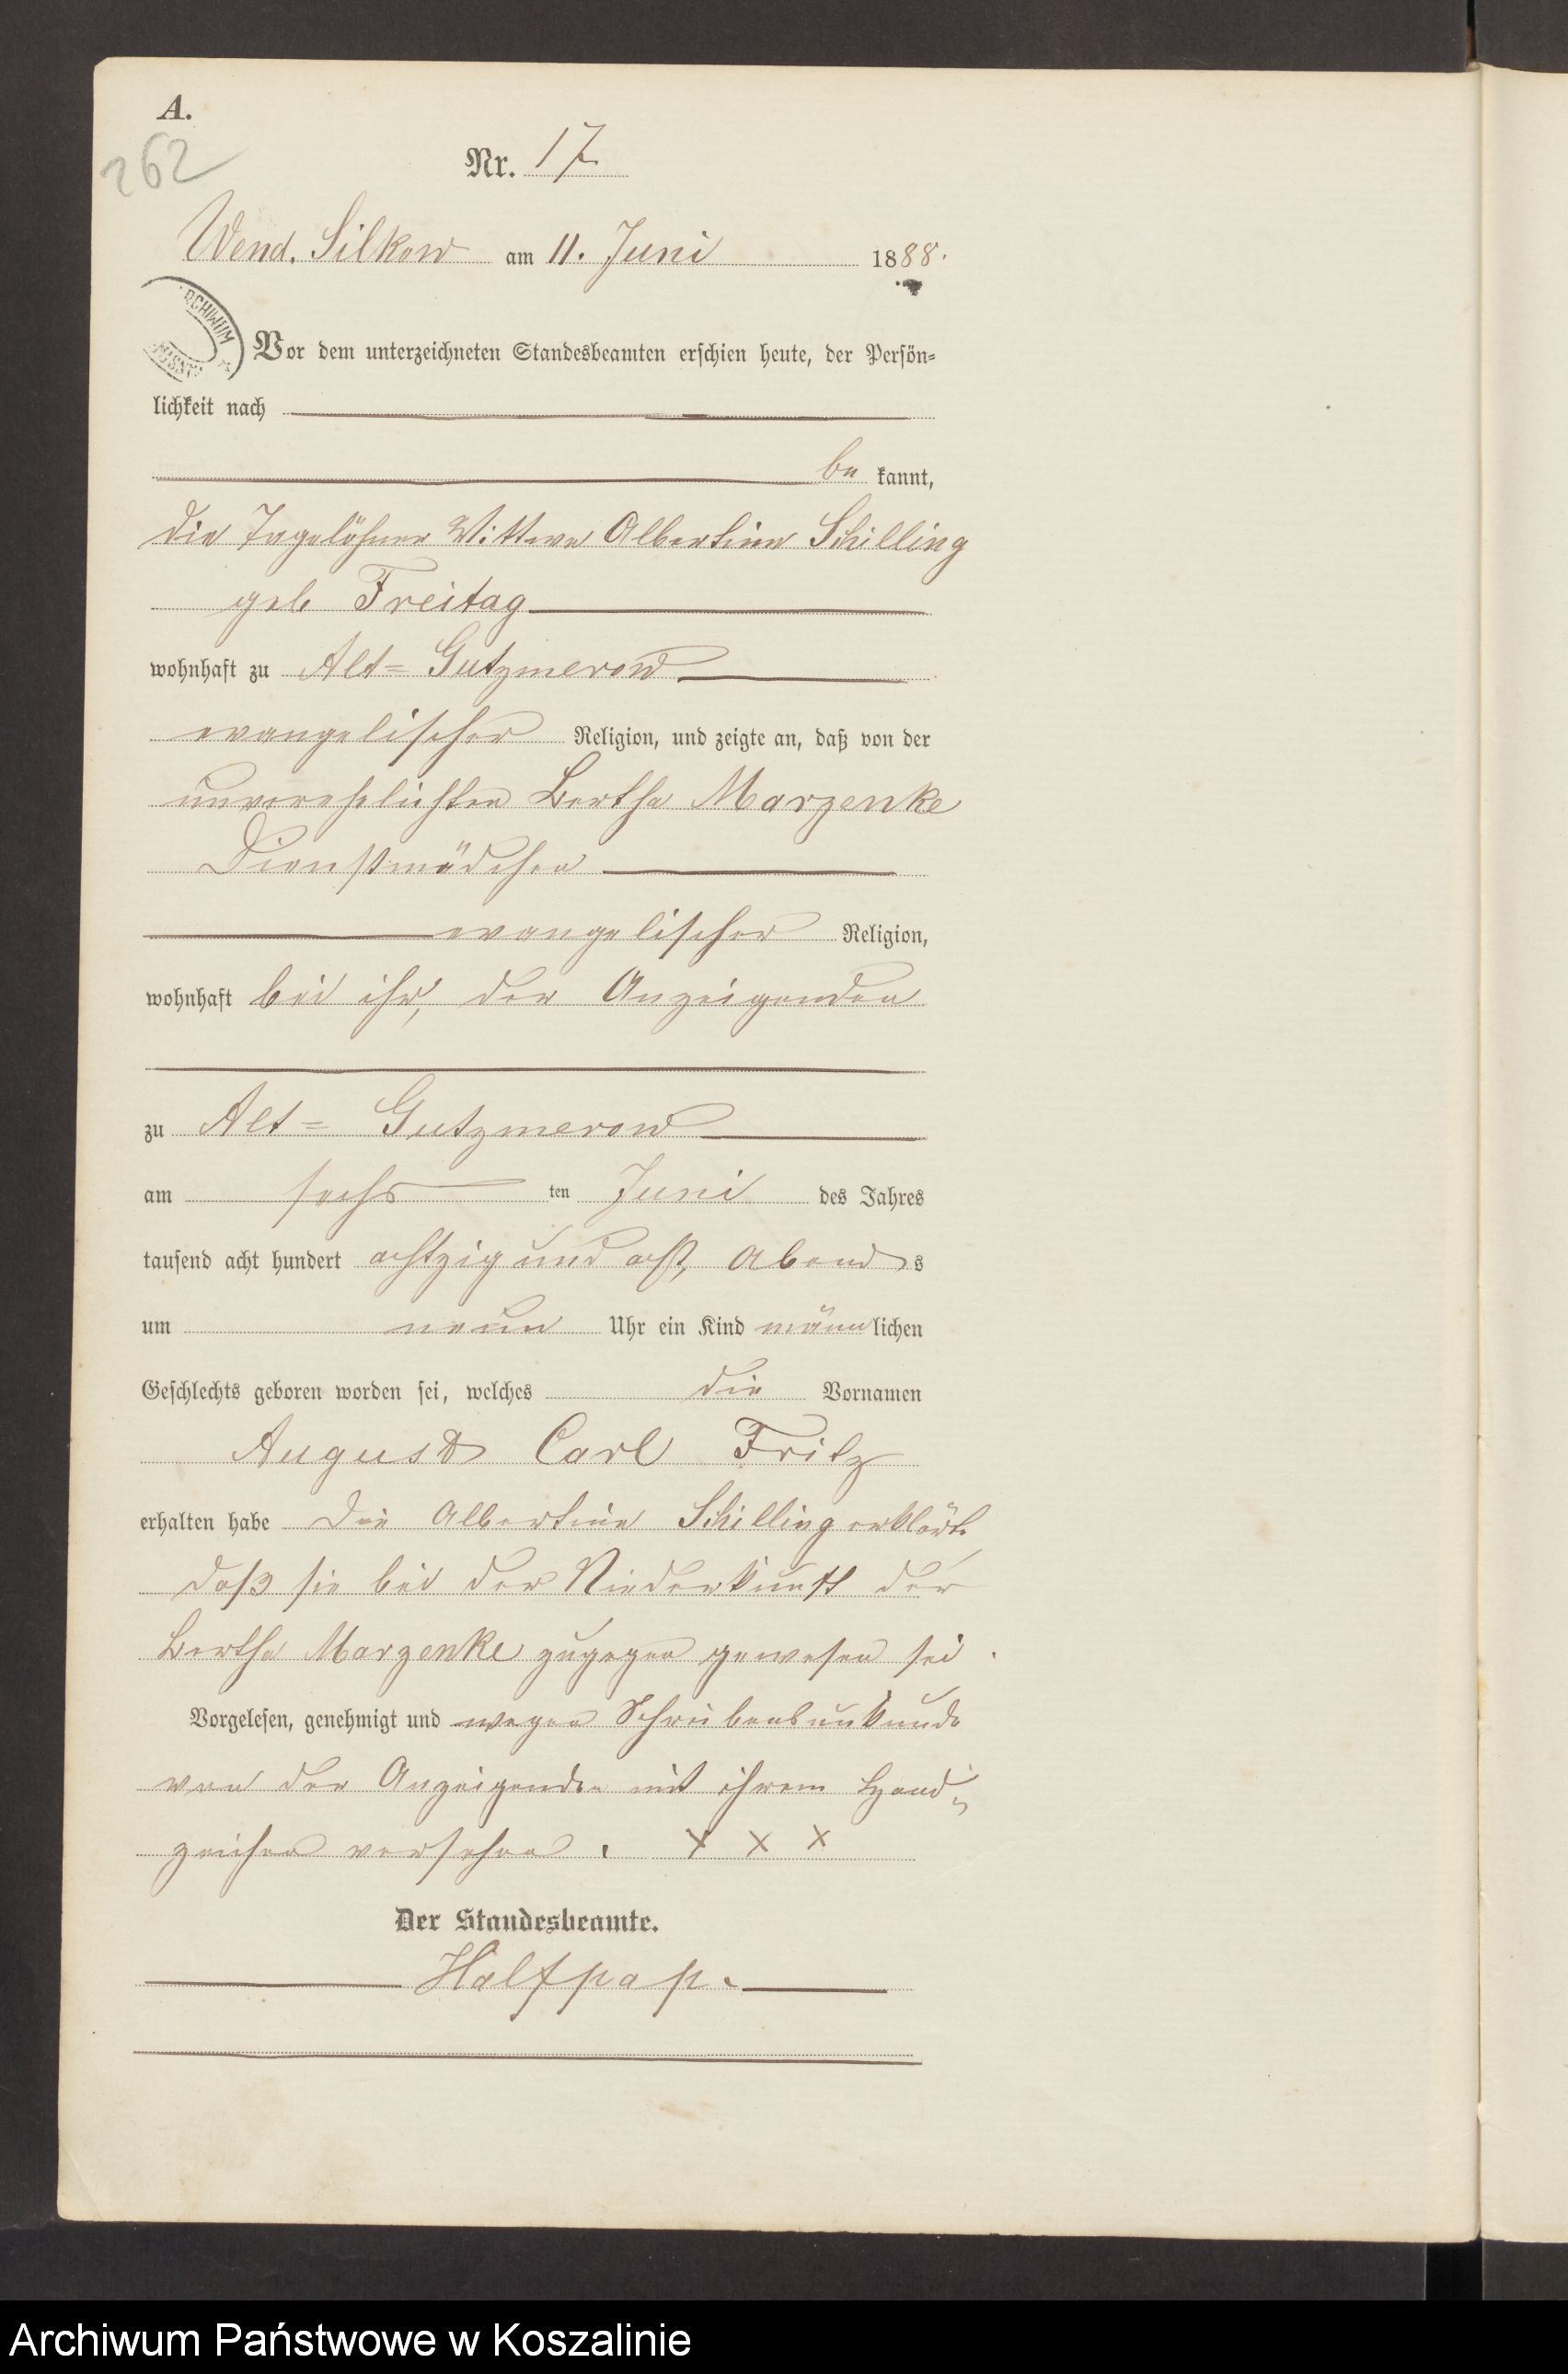 A.
262
Nr. 17
Wend. Silkow am 11. Juni 1888.
RCHIWUM
Vor dem unterzeichneten Standesbeamten erschien heute, der Persön-
lichkeit nach
be kannt,
die Tagelöhner Wittwe Albertine Schilling
geb Freitag
wohnhaft zu Alt-Gutzmerow
evangelischer Religion, und zeigte an, daß von der
unverehelichten Bertha Marzenke
Dienstmädchen
evangelischer Religion,
wohnhaft bei ihr, der Anzeigenden
zu Alt-Gutzmerow
am sechs ten Juni des Jahres
tausend acht hundert achtzig und acht, Abends
um neun Uhr ein Kind männlichen
Geschlechts geboren worden sei, welches die Vornamen
August Carl Fritz
erhalten habe Die Albertine Schilling erklärt,
daß sie bei der Niederkunft der
Bertha Marzenke zugegen gewesen sei.
Vorgelesen, genehmigt und wegen Schreibensunkunde
von der Anzeigenden mit ihrem Hand-
zeichen versehen. X X X
Der Standesbeamte.
Halfpap.
Archiwum Państwowe w Koszalinie